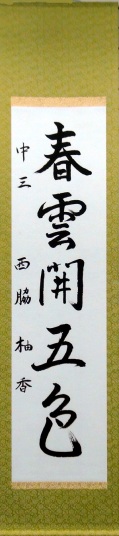 春雲開五色
中三 西脇 柚香